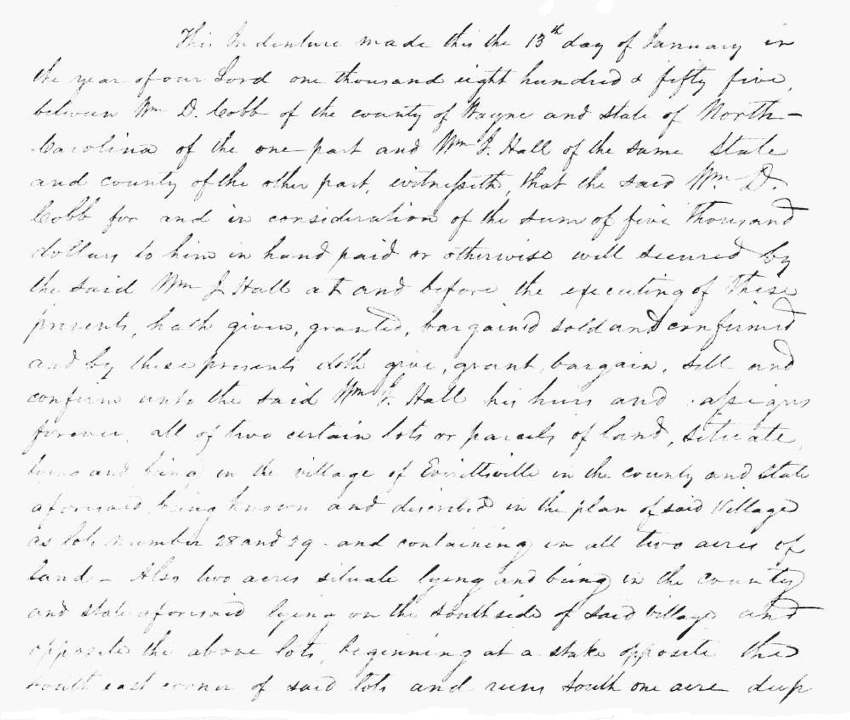 This Indenture made this the 13th day of January in
the year of our Lord one thousand eight hundred & fifty five,
between Wm D. Cobb of the county of Wayne and state of North-
Carolina of the one part and Wm J. Hall of the same State
and county of the other part, witnesseth, that the said Wm. D.
Cobb for and in consideration of the sum of five Thousand
dollars to him in hand paid or otherwise well secured by
the said Wm J. Hall at and before the executing of These
presents, hath given, granted, bargained sold and confirmed
and by these presents doth give, grant, bargain, sell and
confirm unto the said Wm J. Hall his heirs and assigns
forever, all of two certain lots or parcels of land, situate,
lying and being in the village of Everittsville in the county and state
aforesaid being known and described in the plan of said Village
as lots number 28 and 29 - and containing in all two acres of
land - Also two acres situate lying and being in the county
and state aforesaid lying on the south side of said village and
opposite the above lots, beginning at a stake opposite the
south east corner of said lots and runs South one acre deep